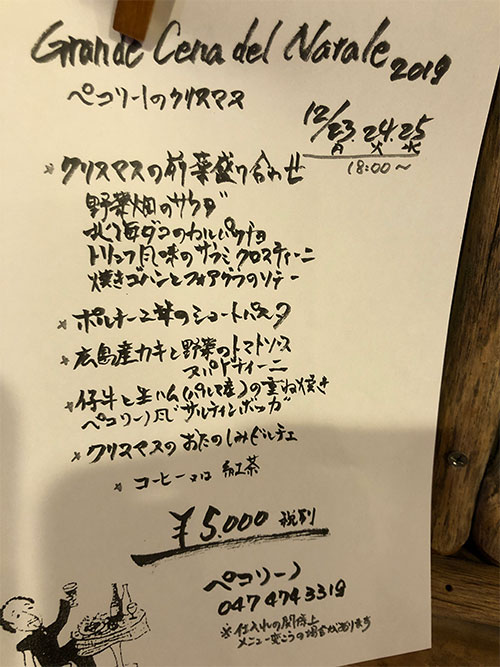 Grande Cena del Natale 2019
ペコリーノのクリスマス
12/23.24.25
月 火 水
18:00〜
* クリスマスの前菜盛り合わせ
野菜畑のサラダ
北海ダコのカルパッチョ
トリュフ風味のサラミ クロスティーニ
焼きゴハンとフォアグラのソテー
* ポルチーニ茸のショートパスタ
* 広島産カキと野菜のトマトソース
スパゲティーニ
* 仔牛と生ハム(パルマ産)の重ね焼き
ペコリーノ風 サルティンボッカ
* クリスマスのおたのしみドルチェ
* コーヒー又は 紅茶
¥5.000 税別
ペコリーノ
047 474 3319
※仕入れの関係上
メニュー変こうの場合が有ります